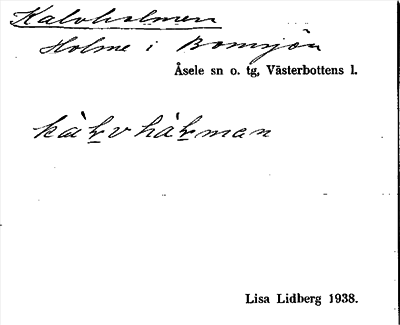 Kalvholmen
Holme i Bomsjön
Åsele sn o. tg, Västerbottens l.
kàl̠vhål̠man
Lisa Lidberg 1938.